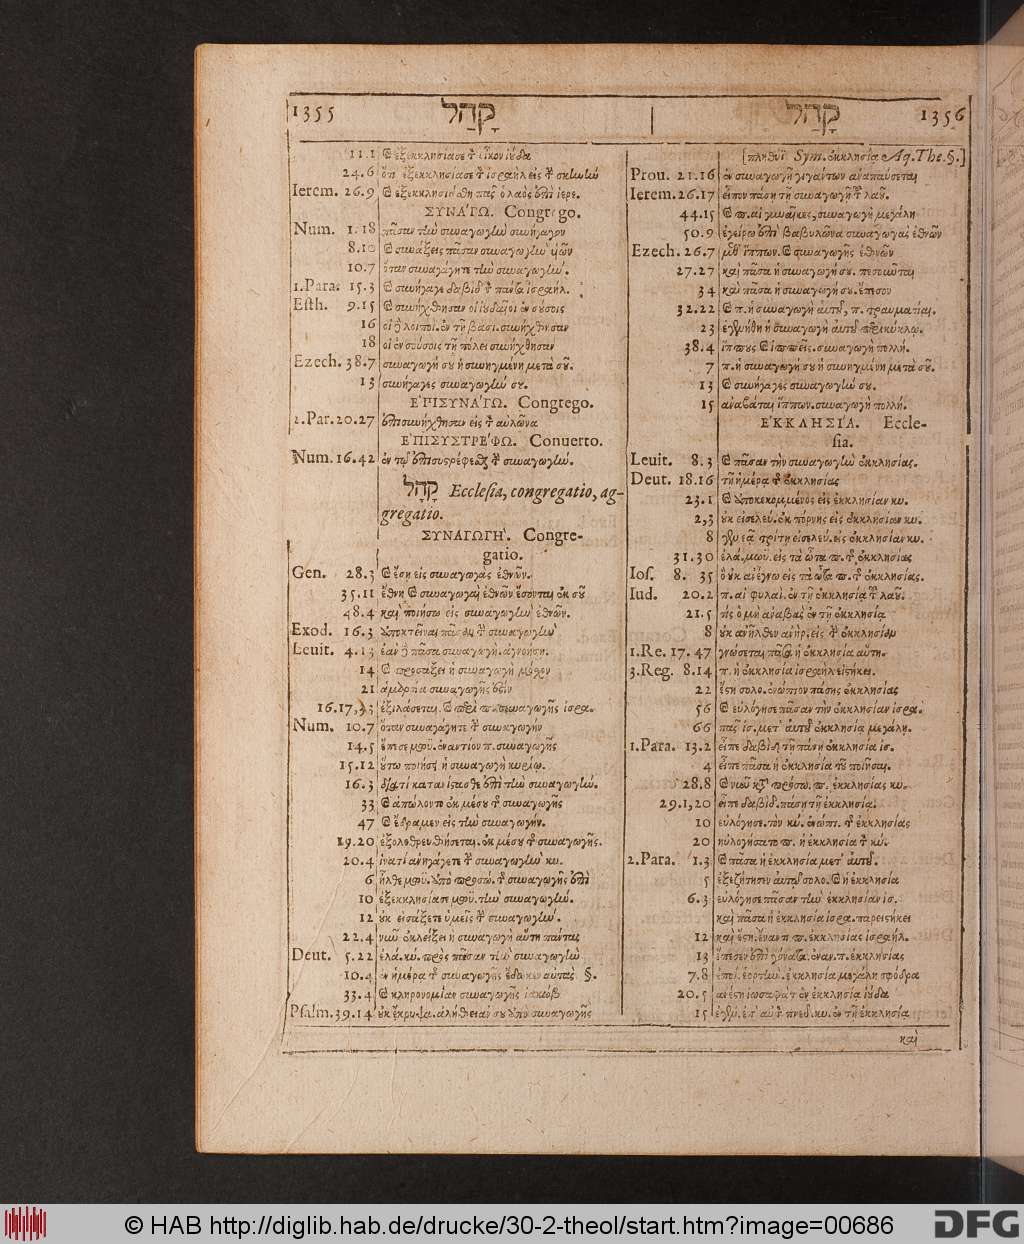 1355 קָהַל
11.1 ἐξεκκλησίασε τ οἶκον ἰούδα
24.6 ὅτι ἐξεκκλησίασε τ ἰσραὴλ εἰς τ σκηνὴν
Ierem. 26.9 ἐξεκκλησιάσθη πᾶς ὁ λαὸς ἐπὶ ἱερε.
ΣΥΝΑΓΩ. Congrego.
Num. 1.18 πᾶσαν τὴν συναγωγὴν συνήγαγον
8.10 συνάξεις πᾶσαν συναγωγὴν ὑῶν
10.7 ὅταν συναγάγητε τὴν συναγωγήν.
1.Para. 15.3 συνήγαγε δαβὶδ τ πάντα ἰσραήλ.
Esth. 9.15 συνήχθησαν οἱ ἰουδαῖοι ἐν σούσοις
16 οἱ λοιποὶ. ἐν τῇ βασι. συνήχθησαν
18 οἱ ἐν σούσοις τῇ πόλει συνήχθησαν
Ezech. 38.7 συναγωγή σου ἡ συνηγμένη μετὰ σοῦ.
13 συνήγαγες συναγωγήν σου.
ἘΠΙΣΥΝΑΓΩ. Congrego.
2.Par. 20.27 ἐπισυνήχθησαν εἰς τ αὐλῶνα
ἘΠΙΣΥΣΤΡΕΦΩ. Conuerto.
Num. 16.42 ἐν τῷ ἐπισυστρέφεσθαι τ συναγωγήν.
קָהָל Ecclesia, congregatio, ag-
gregatio.
ΣΥΝΑΓΩΓΗ. Congre-
gatio.
Gen. 28.3 ἔσῃ εἰς συναγωγὰς ἐθνῶν.
35.11 ἔθνη συναγωγαὶ ἐθνῶν ἔσονται ἐκ σοῦ
48.4 καὶ ποιήσω εἰς συναγωγὴν ἐθνῶν.
Exod. 16.3 ἀποκτεῖναι πᾶσαν τ συναγωγὴν
Leuit. 4.13 ἐὰν πᾶσα συναγωγὴ. ἀγνοήσῃ.
14 προσάξει ἡ συναγωγὴ μόσχον
21 ἁμαρτία συναγωγῆς ἐστίν
16.17,33 ἐξιλάσεται. περὶ π. συναγωγῆς ἰσρα.
Num. 10.7 ὅταν συναγάγητε τ συναγωγὴν
14.5 ἔπεσε μωϋ. ἐναντίον π. συναγωγῆς
15.12 οὕτω ποιήσει ἡ συναγωγὴ κυρίῳ.
16.3 διατί κατανίστασθε ἐπὶ τὴν συναγωγήν.
33 ἀπώλοντο ἐκ μέσου τ συναγωγῆς
47 ἔδραμεν εἰς τὴν συναγωγήν.
19.20 ἐξολοθρευθήσεται. ἐκ μέσου τ συναγωγῆς.
20.4 ἱνατί ἀνηγάγετε τ συναγωγὴν κυ.
6 ἦλθε μωϋ. ἀπὸ προσώ. τ συναγωγῆς ἐπὶ
10 ἐξεκκλησίασε μωϋ. τὴν συναγωγήν.
12 οὐκ εἰσάξετε ὑμεῖς τ συναγωγήν.
22.4 νῦν ἐκλείξει ἡ συναγωγὴ αὕτη πάντας
Deut. 5.22 ἐλά. κύ. πρὸς πᾶσαν τὴν συναγωγὴν
10.4 ἐν ἡμέρᾳ τ συναγωγῆς ἔδωκεν αὐτὰς §.
33.4 κληρονομίαν συναγωγῆς ἰακὼβ
Psalm. 39.14 οὐκ ἔκρυψα. ἀλήθειάν σου ἀπὸ συναγωγῆς
קָהָל 1356
[πληθύϊ Sym. ἐκκλησίᾳ Aq. The. §.]
Prou. 21.16 ἐν συναγωγῇ γιγάντων ἀναπαύσεται
Ierem. 26.17 εἶπον πάσῃ τῇ συναγωγῇ τ λαοῦ.
44.15 π. αἱ γυναῖκες, συναγωγὴ μεγάλη
50.9 ἐγείρω ἐπὶ βαβυλῶνα συναγωγὰς ἐθνῶν
Ezech. 26.7 μεθ' ἵππων. συναγωγῆς ἐθνῶν
27.27 καὶ πᾶσα ἡ συναγωγή σου. πεσοῦνται
34 καὶ πᾶσα ἡ συναγωγή σου. ἔπεσον
32.22 π. ἡ συναγωγὴ αὐτοῦ, π. τραυματίαι.
23 ἐγενήθη ἡ συναγωγὴ αὐτοῦ περικύκλῳ.
38.4 ἵππους ἱππεῖς. συναγωγὴ πολλή.
7 π. ἡ συναγωγή σου ἡ συνηγμένη μετὰ σοῦ.
13 συνήγαγες συναγωγήν σου.
15 ἀναβάται ἵππων. συναγωγὴ πολλή.
ἘΚΚΛΗΣΙΑ. Eccle-
sia.
Leuit. 8.3 πᾶσαν τὴν συναγωγὴν ἐκκλησίας.
Deut. 18.16 τῇ ἡμέρᾳ τ ἐκκλησίας
23.1 ἀποκεκομμένος εἰς ἐκκλησίαν κυ.
2,3 οὐκ εἰσελεύ. ἐκ πόρνης εἰς ἐκκλησίαν κυ.
8 γενεᾷ τρίτῃ εἰσελεύ. εἰς ἐκκλησίαν κυ.
31.30 ἐλά. μωϋ. εἰς τὰ ὦτα π. τ ἐκκλησίας
Ios. 8. 35 ὃ οὐκ ἀνέγνω εἰς τὰ ὦτα π. τ ἐκκλησίας.
Iud. 20.2 π. αἱ φυλαὶ. ἐν τῇ ἐκκλησίᾳ τ λαοῦ.
21.5 τίς ὁ μὴ ἀναβὰς ἐν τῇ ἐκκλησίᾳ
8 οὐκ ἀνῆλθεν ἀνὴρ. εἰς τ ἐκκλησίαν
1.Re. 17.47 γνώσεται πᾶσα ἡ ἐκκλησία αὕτη.
3.Reg. 8.14 π. ἡ ἐκκλησία ἰσραὴλ εἱστήκει.
22 ἔστη σολο. ἐνώπιον πάσης ἐκκλησίας
56 εὐλόγησε πᾶσαν τὴν ἐκκλησίαν ἰσρα.
66 πᾶς ἰσ. μετ' αὐτοῦ ἐκκλησία μεγάλη.
1.Para. 13.2 εἶπε δαβὶδ τῇ πάσῃ ἐκκλησίᾳ ἰσ.
4 εἶπε πᾶσα ἡ ἐκκλησία τοῦ ποιῆσαι.
28.8 νῦν κατὰ πρόσω. π. ἐκκλησίας κυ.
29.1,20 εἶπε δαβὶδ. πάσῃ τῇ ἐκκλησίᾳ.
10 εὐλόγησε. τὸν κύ. ἐνώπι. τ ἐκκλησίας
20 ηὐλόγησε π. ἡ ἐκκλησία τ κύ.
2.Para. 1.3 πᾶσα ἡ ἐκκλησία μετ' αὐτοῦ.
5 ἐξεζήτησεν αὐτὸ σολο. ἡ ἐκκλησία
6.3 εὐλόγησε πᾶσαν τὴν ἐκκλησίαν ἰσ.
καὶ πᾶσα ἡ ἐκκλησία ἰσρα. παρειστήκει
12 καὶ ἔστη. ἔναντι π. ἐκκλησίας ἰσραήλ.
13 ἔπεσεν ἐπὶ γόνατα. ἔναν. π. ἐκκλησίας
7.8 ἐποί. ἑορτὴν. ἐκκλησία μεγάλη σφόδρα
20.5 ἀνέστη ἰωσαφὰτ ἐν ἐκκλησίᾳ ἰούδα
15 ἐγέν. ἐπ' αὐτ πνεῦ. κυ. ἐν τῇ ἐκκλησίᾳ
καὶ
© HAB http://diglib.hab.de/drucke/30-2-theol/start.htm?image=00686 DFG